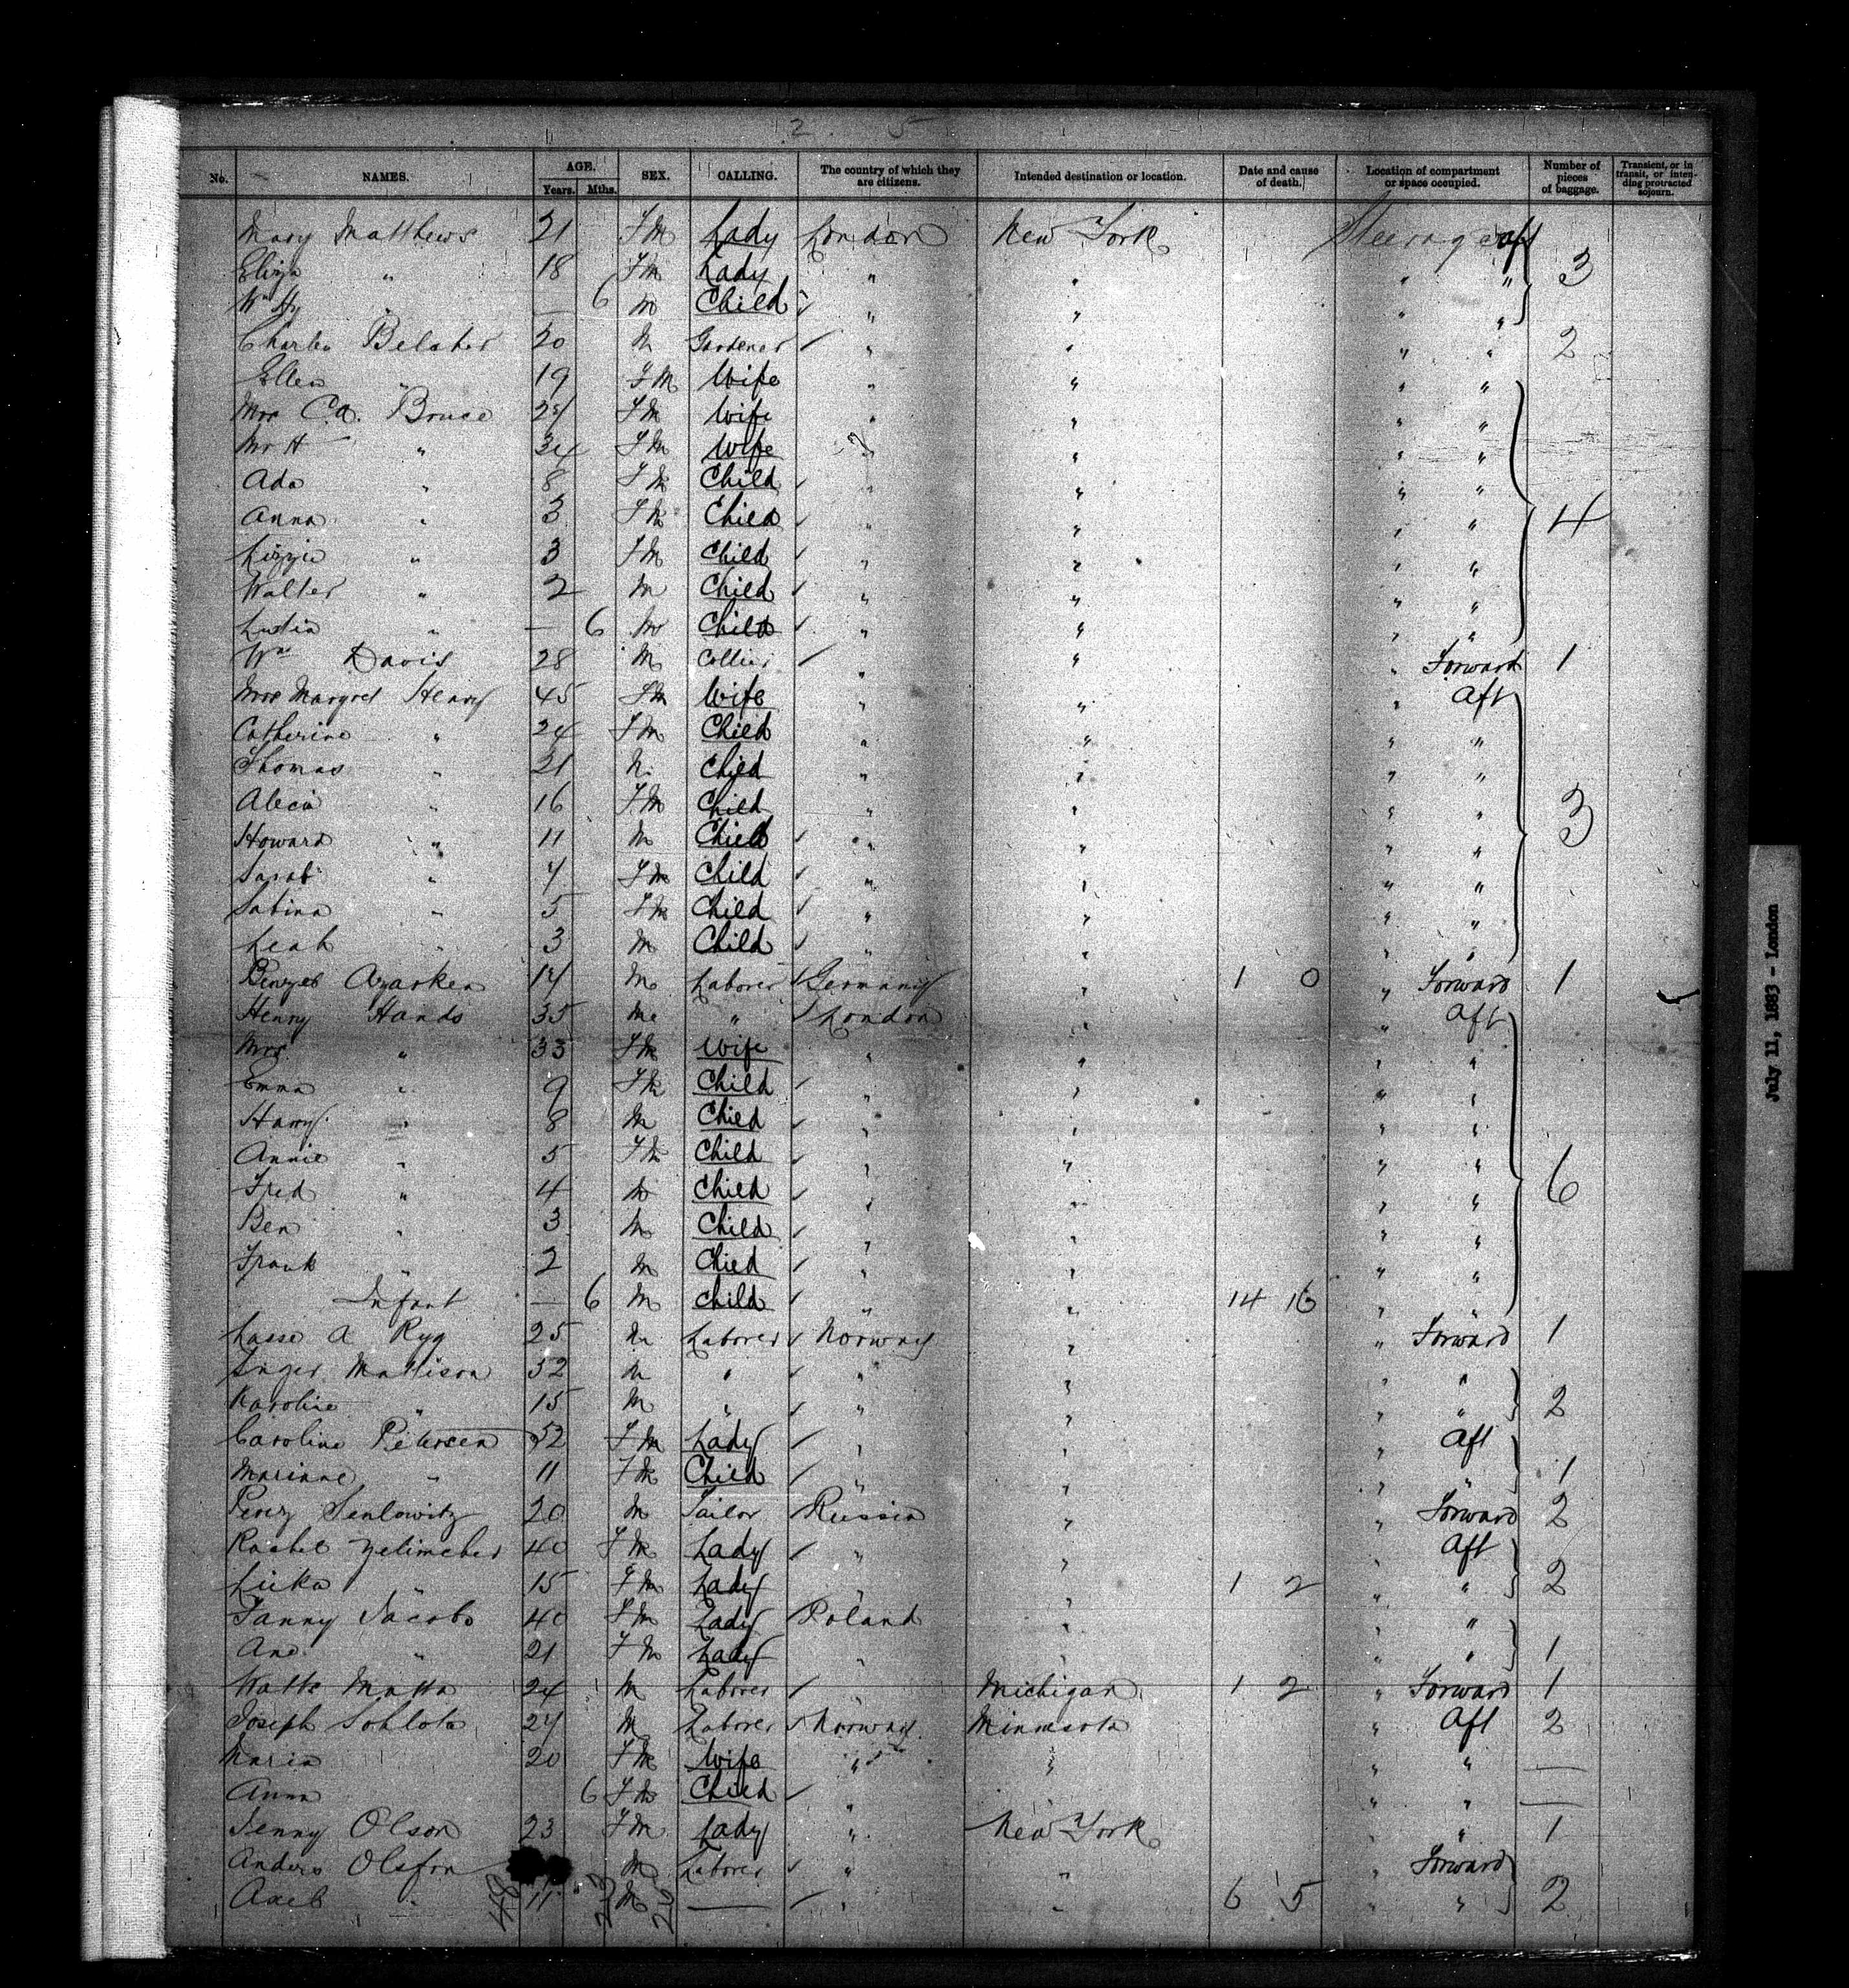 2 5
No. NAMES. AGE. Years. Mths. SEX. CALLING. The country of which they are citizens. Intended destination or location. Date and cause of death. Location of compartment or space occupied. Number of pieces of baggage. Transient, or in transit, or intending protracted sojourn.
Mary Matthews 21 Fm Lady London New York Steerage aft
Eliza " 18 Fm Lady " " " " 3
Wm Hy " — 6 m Child " " " "
Charles Belcher 20 m Gardener " " " " 2
Ellen " 19 Fm Wife " " " "
Mrs Ca. Bruce 27 Fm Wife " " " "
Mr H " 34 Fm Wife " " " "
Ada " 8 Fm Child " " " "
Anna " 3 Fm Child " " " " 4
Lizzie " 3 Fm Child " " " "
Walter " 2 m Child " " " "
" — 6 m Child " " " "
Wm Davis 28 m Collier " " " Forward 1
Mrs Margret Henry 45 Fm Wife " " " Aft
Catherine " 24 Fm Child " " " "
Thomas " 21 m Child " " " "
Alecia " 16 Fm Child " " " "
Howard " 11 m Child " " " " 3
Sarah " 7 Fm Child " " " "
Sabina " 5 Fm Child " " " "
Leah " 3 m Child " " " "
m Laborer Germany " 1 0 " Forward 1
Henry Hands 35 m " London " " Aft
Mrs " 33 Fm Wife " " " "
Emma " 9 Fm Child " " " "
Harry " 8 m Child " " " "
Annie " 5 Fm Child " " " "
Fred " 4 m Child " " " " 6
Ben " 3 m Child " " " "
Frank " 2 m Child " " " "
Infant — 6 m Child " " 14 16 " "
Lasse A Ryg 25 m Laborer Norway " " Forward 1
Inger Mattison 32 m " " " " "
Karoline " 15 m " " " " " 2
Caroline Petersen 52 Fm Lady " " " Aft
Mariane " 11 Fm Child " " " " 1
20 m Tailor Russia " " Forward 2
Rachel 40 Fm Lady " " " Aft
" 15 Fm Lady " " 1 2 " " 2
Fanny Jacobs 40 Fm Lady Poland " " "
Ane " 21 Fm Lady " " " " 1
Matta 24 m Laborer " Michigan 1 2 " Forward 1
Joseph 27 m Laborer Norway Minnesota " Aft 2
Maria 20 Fm Wife " " " " —
Anna 6 Fm Child " " " " —
Jenny Olson 23 Fm Lady " New York " " 1
Anders Olsson m Laborer " " " Forward
Axel " 11 m — " " 6 5 " " 2
July 11, 1883 - London